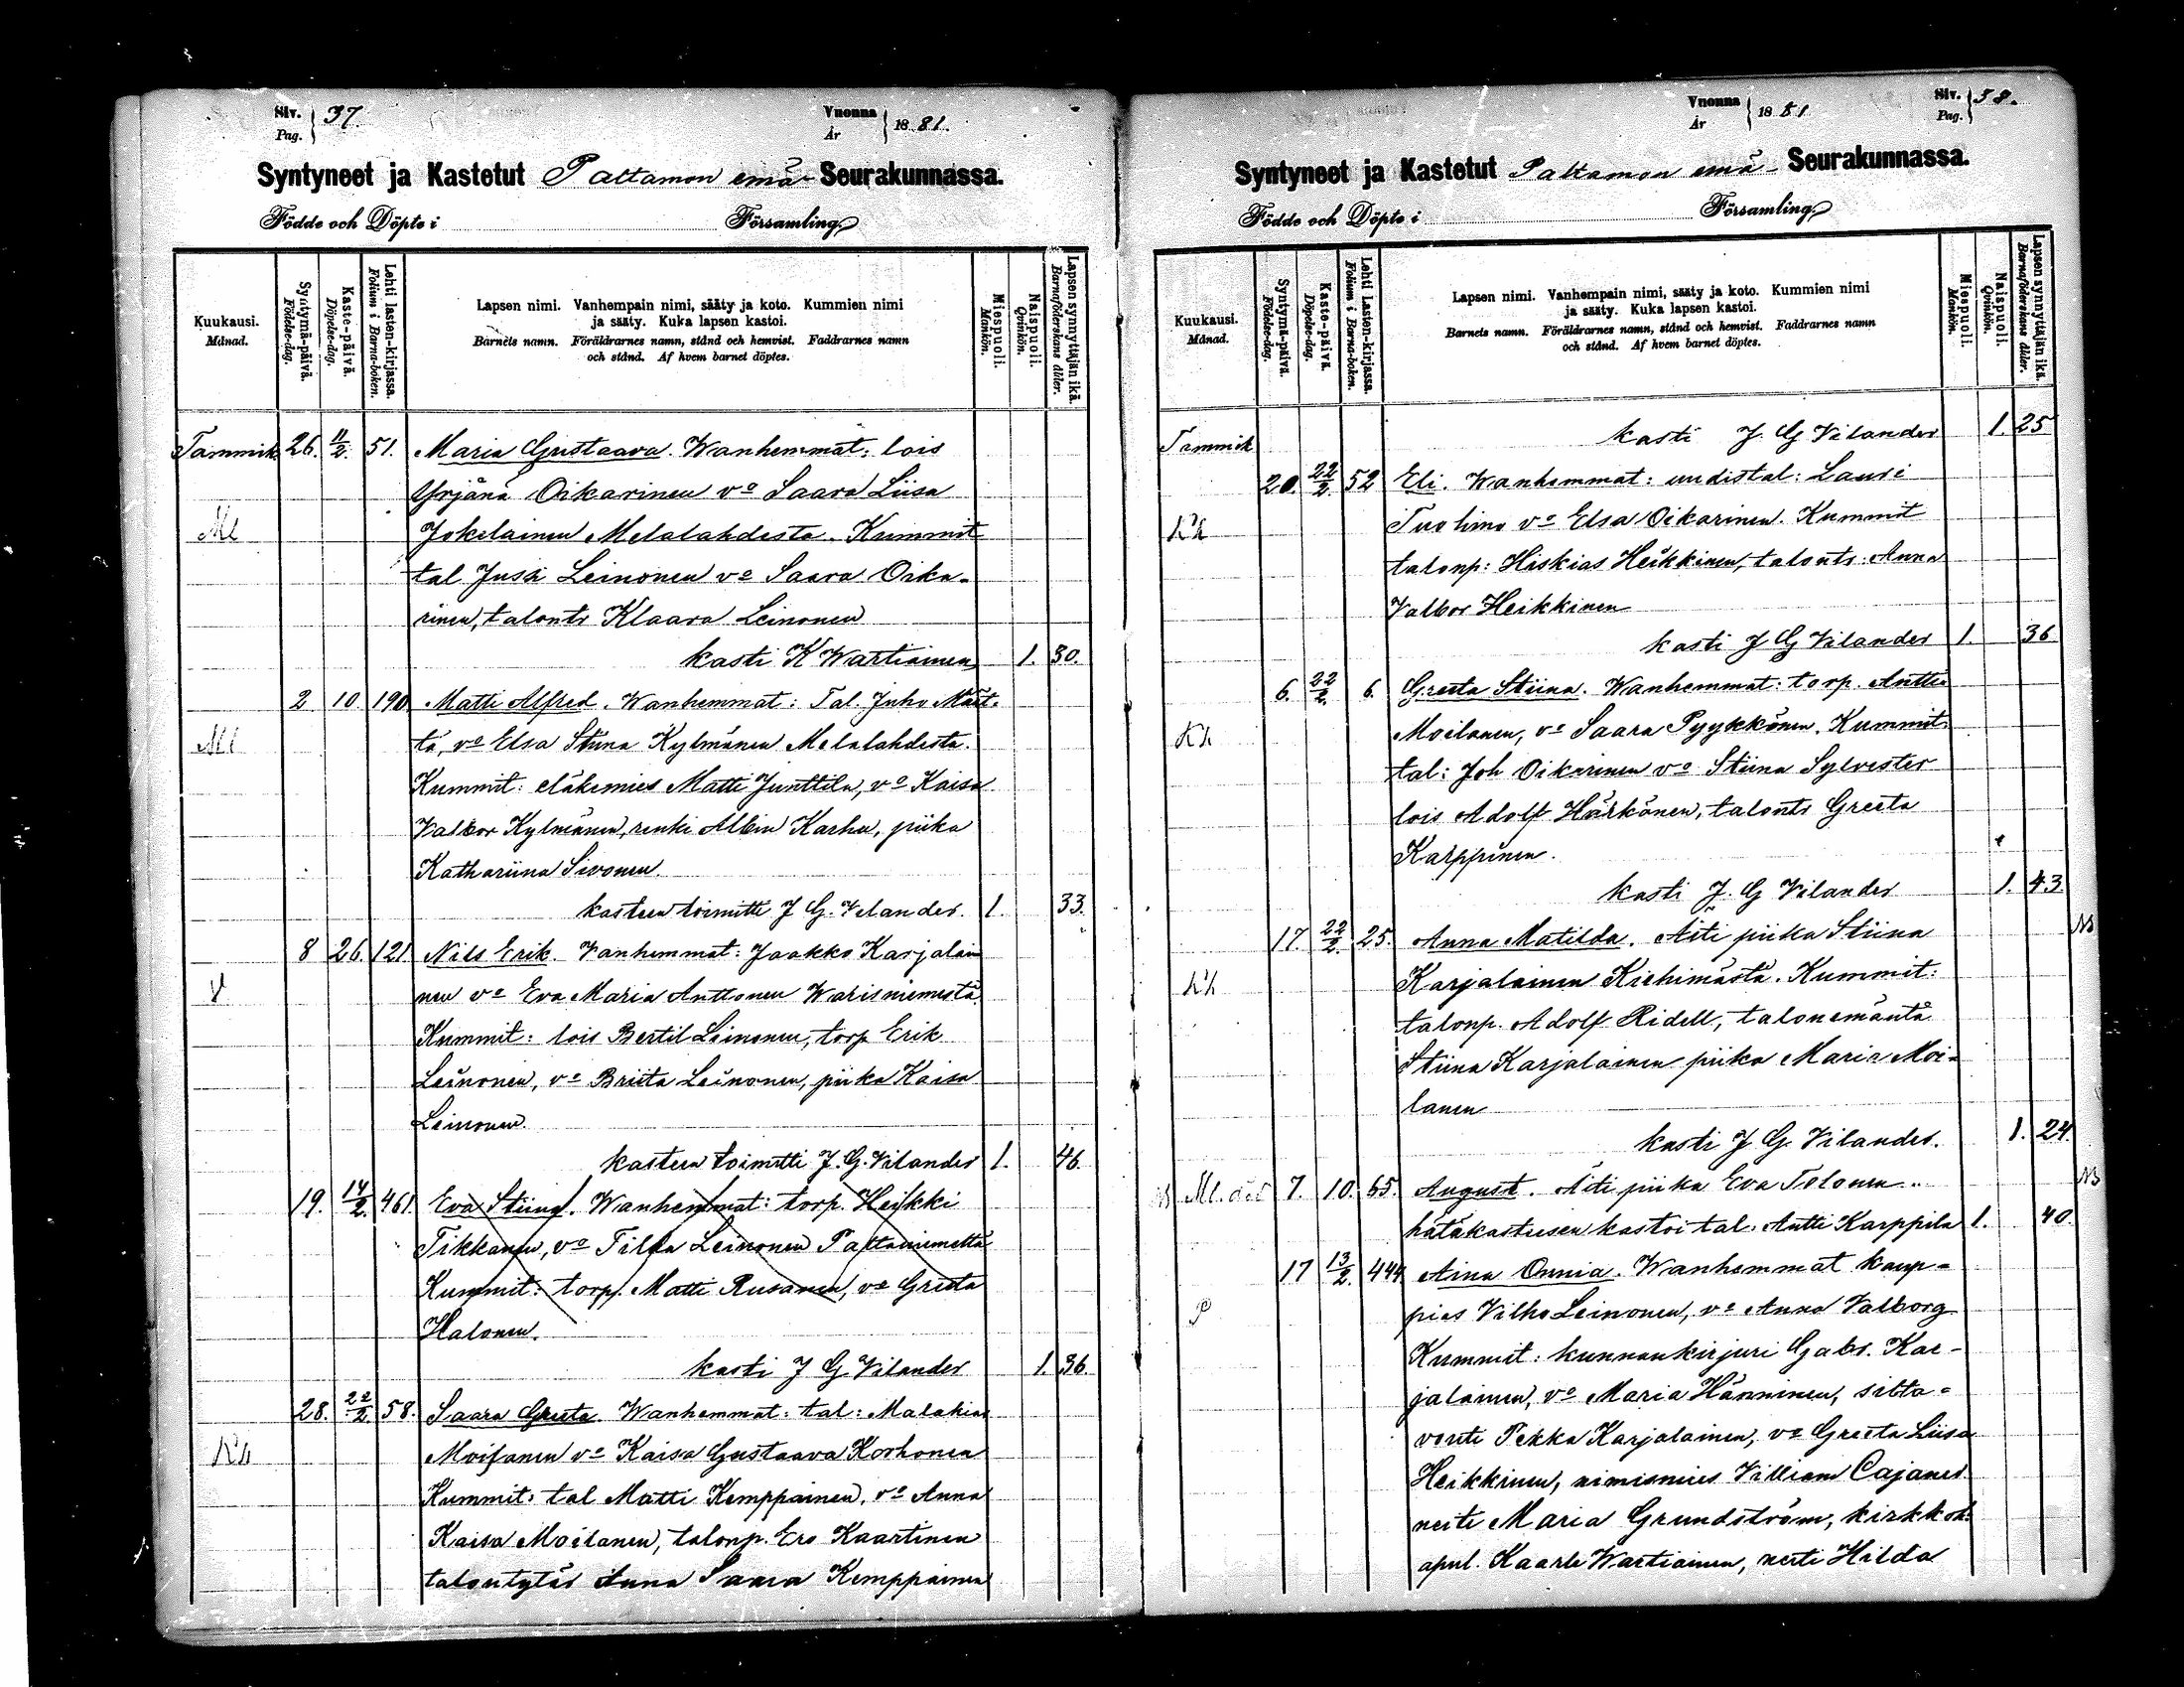 Siv. Pag. } 37.
Vuonna År } 1881.
Syntyneet ja Kastetut Paltamon emä- Seurakunnassa.
Födde och Döpte i Församling.
Kuukausi. Månad.
Syntymä-päivä. Födelse-dag.
Kaste-päivä. Döpelse-dag.
Lehti lasten-kirjassa. Folium i Barna-boken.
Lapsen nimi. Vanhempain nimi, sääty ja koto. Kummien nimi
ja sääty. Kuka lapsen kastoi.
Barnets namn. Föräldrarnes namn, stånd och hemvist. Faddrarnes namn
och stånd. Af hvem barnet döptes.
Miespuoli. Mankön.
Naispuoli. Qvinkön.
Lapsen synnyttäjän ikä. Barnaföderskans ålder.
Tammik. 26. 11/2. 51. Maria Gustaava. Wanhemmat: lois
Yrjänä Oikarinen vo Saara Liisa
Ml Jokelainen Melalahdesta. Kummit
tal Jussi Leinonen vo Saara Oika-
rinen, talonts Klaara Leinonen
kasti K Wartiainen 1. 30.
2 10 190 Matti Alfred. Wanhemmat: Tal. Juho Mät-
Ml tä, vo Elsa Stiina Kylmänen Melalahdesta.
Kummit: eläkemies Matti Junttila, vo Kaisa
Valbor Kylmänen, renki Albin Karhu, piika
Kathariina Sivonen.
kasteen toimitti J G. Vilander. 1. 33.
8 26. 121 Nils Erik. Vanhemmat: Jaakko Karjalai
V nen vo Eva Maria Anttonen Warisniemestä
Kummit: lois Bertil Leinonen, torp Erik
Leinonen, vo Briita Leinonen, piika Kaisa
Leinonen.
kasteen toimitti J. G. Vilander 1. 46.
19. 14/2. 461. Eva Stiina. Wanhemmat: torp. Heikki
Tikkanen, vo Tilda Leinonen Paltaniemeltä
Kummit: torp. Matti Rusanen, vo Greeta
Halonen.
kasti J G Vilander 1. 36.
28. 22/2 58. Saara Greeta. Wanhemmat: tal: Malakias
Kh Moisanen vo Kaisa Gustaava Korhonen
Kummit: tal Matti Kemppainen, vo Anna
Kaisa Moilanen, talonp. Ero Kaartinen
talontytär Anna Saara Kemppainen
Vuonna År } 1881
Siv. Pag. } 38.
Syntyneet ja Kastetut Paltamon emä- Seurakunnassa.
Födde och Döpte i Församling.
Kuukausi. Månad.
Syntymä-päivä. Födelse-dag.
Kaste-päivä. Döpelse-dag.
Lehti Lasten-kirjassa. Folium i Barna-boken.
Lapsen nimi. Vanhempain nimi, sääty ja koto. Kummien nimi
ja sääty. Kuka lapsen kastoi.
Barnets namn. Föräldrarnes namn, stånd och hemvist. Faddrarnes namn
och stånd. Af hvem barnet döptes.
Miespuoli. Mankön.
Naispuoli. Qvinkön.
Lapsen synnyttäjän ikä. Barnaföderskans ålder.
Tammik kasti J. G Vilander 1. 25
20. 22/2. 52 Eli. Wanhemmat: uudistal: Lauri
Kh Tuohino vo Elsa Oikarinen. Kummit
talonp: Hiskias Heikkinen, talonts: Anna
Valbor Heikkinen
kasti J G Vilander 1. 36
6. 22/2. 6. Greeta Stiina. Wanhemmat: torp. Antti
Kh Moilanen, vo Saara Pyykkönen. Kummit:
tal: Joh Oikarinen vo Stiina Sylvester
lois Adolf Härkönen, talonts Greeta
Karppinen.
kasti J. G Vilander 1. 43.
17. 22/2. 25. Anna Matilda. Äiti piika Stiina
Kh Karjalainen Kiehimästä. Kummit:
talonp. Adolf Ridell, talonemäntä
Stiina Karjalainen piika Maria Moi-
lanen
kasti J G. Vilander. 1. 24.
Ml. 7. 10. 65. August. Äiti piika Eva Tolonen..
hätäkasteesen kastoi tal: Antti Karppila 1. 40
17 13/2. 444 Aina Onnia. Wanhemmat kaup-
P pias Vilho Leinonen, vo Anna Valborg
Kummit: kunnankirjuri Gabr. Kar-
jalainen, vo Maria Hänninen, silta-
vouti Pekka Karjalainen, vo Greeta Liisa
Heikkinen, nimismies Villiam Cajanus
neiti Maria Grundström, kirkkoh:
apul. Kaarle Wartiainen, neiti Hilda